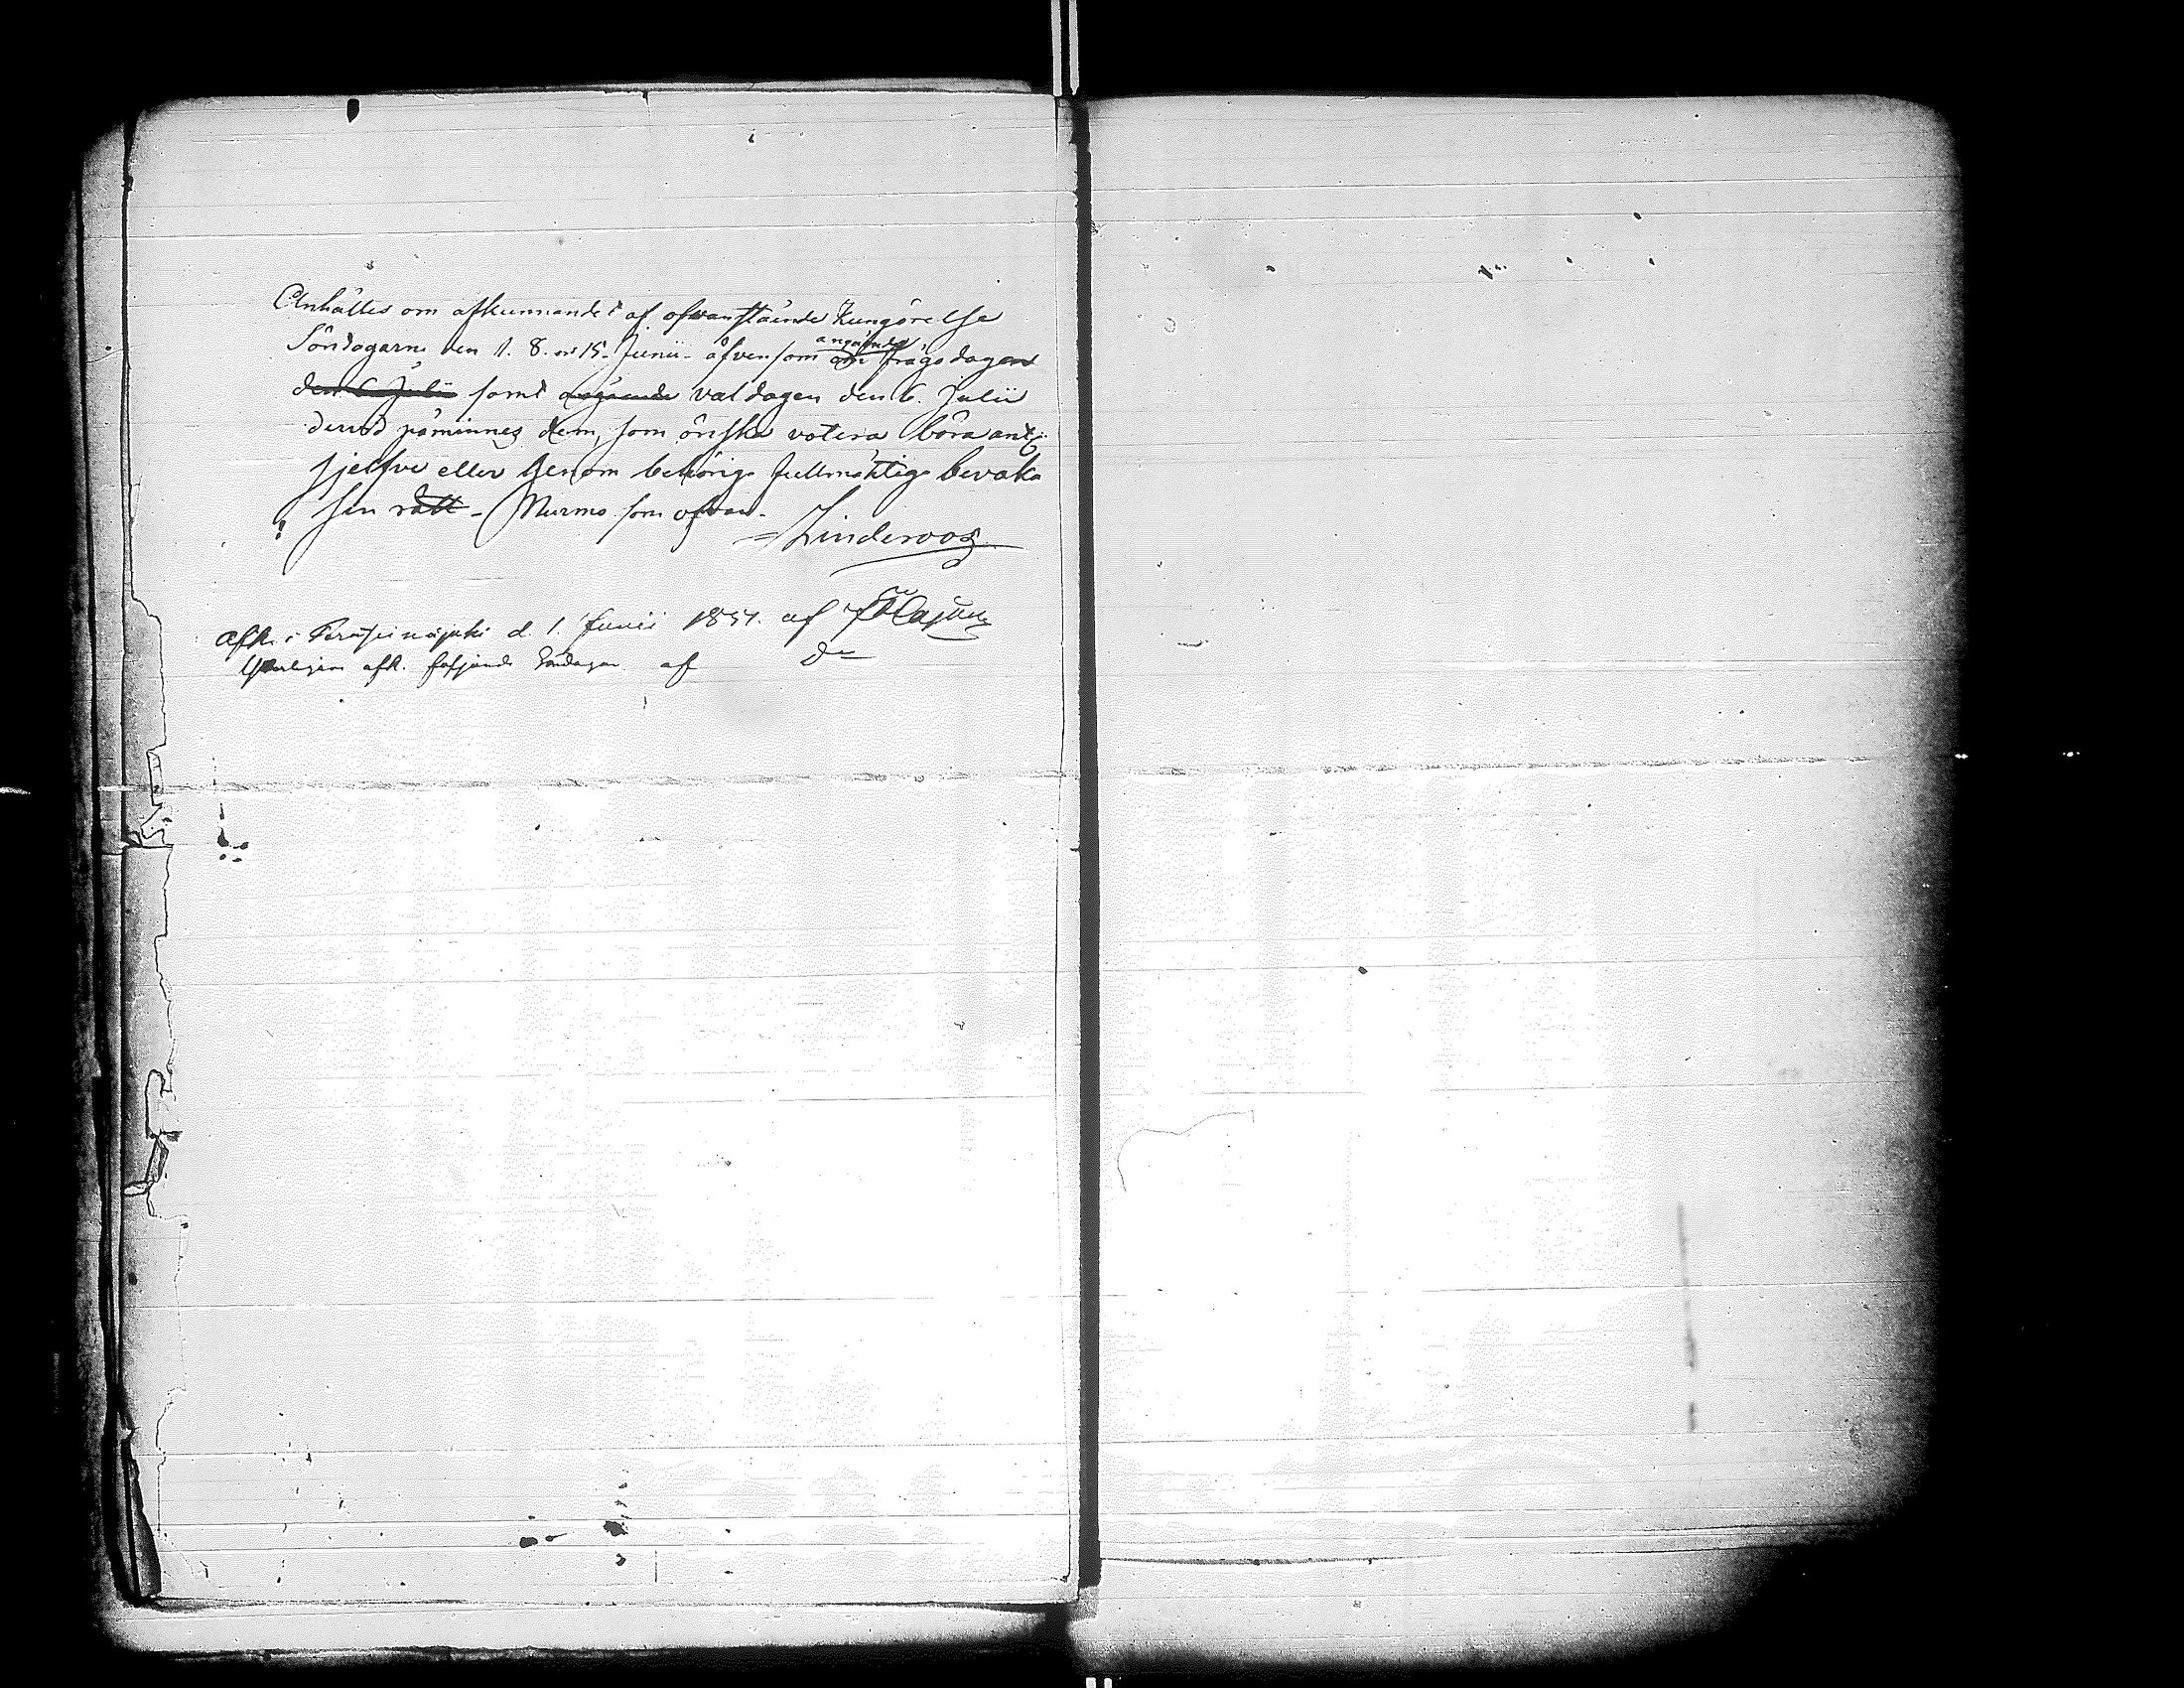 Anhålles om afkunnandet af ofwanstående Kungörelse
Söndagarne den 1. 8. o 15. Junii äfvensom angående frågodagen
den 6 Julii samt angående valdagen den 6. Julii
dervid påminnes dem, som önska votera böra ant.
sjelfve eller genom behörige fullmäktige bevaka
sin rätt - Nurmo som ofvan.
Linderoos
Afk. i Peräseinäjoki d. 1. Junii 1851. af
Ytterligare afk. följande Söndagar af do